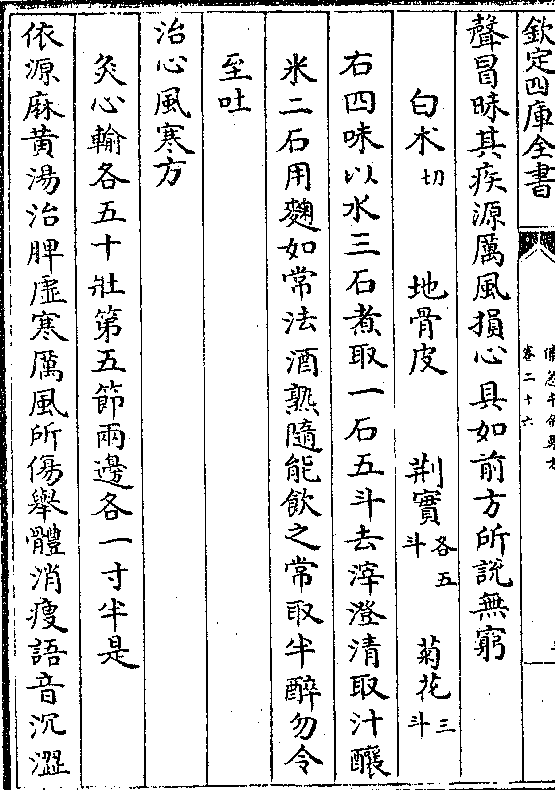 欽定四庫全書
卷二十六
聲冒昧其疾源厲風損心具如前方所説無窮
白术切 地骨皮 荆實各五斗 菊花三斗
右四味以水三石煮取一石五斗去滓澄清取汁釀
米二石用麴如常法酒熟隨能飲之常取半醉勿令
至吐
治心風寒方
灸心輸各五十壯第五節兩邊各一寸半是
依源麻黄湯治脾虛寒厲風所傷舉體消瘦語音沉澀